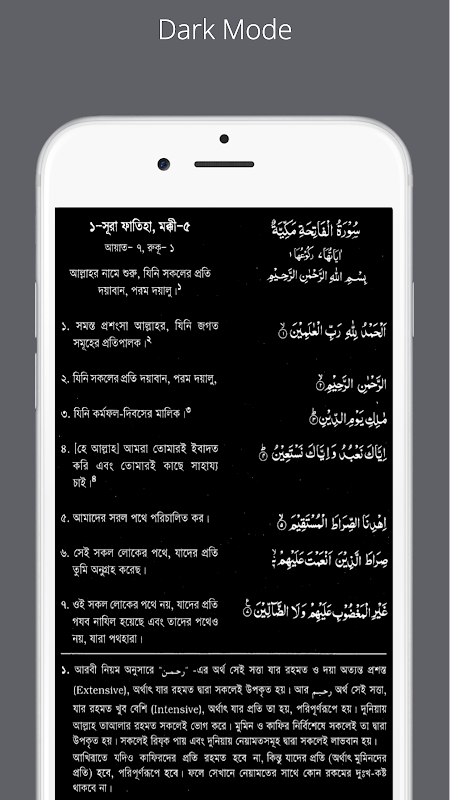 Dark Mode
১–সূরা ফাতিহা, মক্কী–৫
আয়াত– ৭, রুকূ– ১
আল্লাহর নামে শুরু, যিনি সকলের প্রতি
দয়াবান, পরম দয়ালু।১
১. সমস্ত প্রশংসা আল্লাহর, যিনি জগত
সমূহের প্রতিপালক।২
২. যিনি সকলের প্রতি দয়াবান, পরম দয়ালু,
৩. যিনি কর্মফল-দিবসের মালিক।৩
৪. [হে আল্লাহ] আমরা তোমারই ইবাদত
করি এবং তোমারই কাছে সাহায্য
চাই।৪
৫. আমাদের সরল পথে পরিচালিত কর।
৬. সেই সকল লোকের পথে, যাদের প্রতি
তুমি অনুগ্রহ করেছ।
৭. ওই সকল লোকের পথে নয়, যাদের প্রতি
গযব নাযিল হয়েছে এবং তাদের পথেও
নয়, যারা পথহারা।
سُوْرَةُ الْفَاتِحَةِ مَكِّيَّةٌ
اٰيَاتُهَا ٧ رُكُوْعُهَا ١
بِسْمِ اللهِ الرَّحْمٰنِ الرَّحِيْمِ
اَلْحَمْدُ لِلّٰهِ رَبِّ الْعٰلَمِيْنَ ۝١
الرَّحْمٰنِ الرَّحِيْمِ ۝٢
مٰلِكِ يَوْمِ الدِّيْنِ ۝٣
اِيَّاكَ نَعْبُدُ وَاِيَّاكَ نَسْتَعِيْنُ ۝٤
اِهْدِنَا الصِّرَاطَ الْمُسْتَقِيْمَ ۝٥
صِرَاطَ الَّذِيْنَ اَنْعَمْتَ عَلَيْهِمْ ۝٦
غَيْرِ الْمَغْضُوْبِ عَلَيْهِمْ وَلَا الضَّآلِّيْنَ ۝٧
১. আরবী নিয়ম অনুসারে "رحمن" -এর অর্থ সেই সত্তা যার রহমত ও দয়া অত্যন্ত প্রশস্ত
(Extensive), অর্থাৎ যার রহমত দ্বারা সকলেই উপকৃত হয়। আর رحيم অর্থ সেই সত্তা,
যার রহমত খুব বেশি (Intensive), অর্থাৎ যার প্রতি তা হয়, পরিপূর্ণরূপে হয়। দুনিয়ায়
আল্লাহ তাআলার রহমত সকলেই ভোগ করে। মুমিন ও কাফির নির্বিশেষে সকলেই তা দ্বারা
উপকৃত হয়। সকলেই রিযিক পায় এবং দুনিয়ায় নেয়ামতসমূহ দ্বারা সকলেই লাভবান হয়।
আখিরাতে যদিও কাফিরদের প্রতি রহমত হবে না, কিন্তু যাদের প্রতি (অর্থাৎ মুমিনদের
প্রতি) হবে, পরিপূর্ণরূপে হবে। ফলে সেখানে নেয়ামতের সাথে কোন রকমের দুঃখ-কষ্ট
থাকবে না।